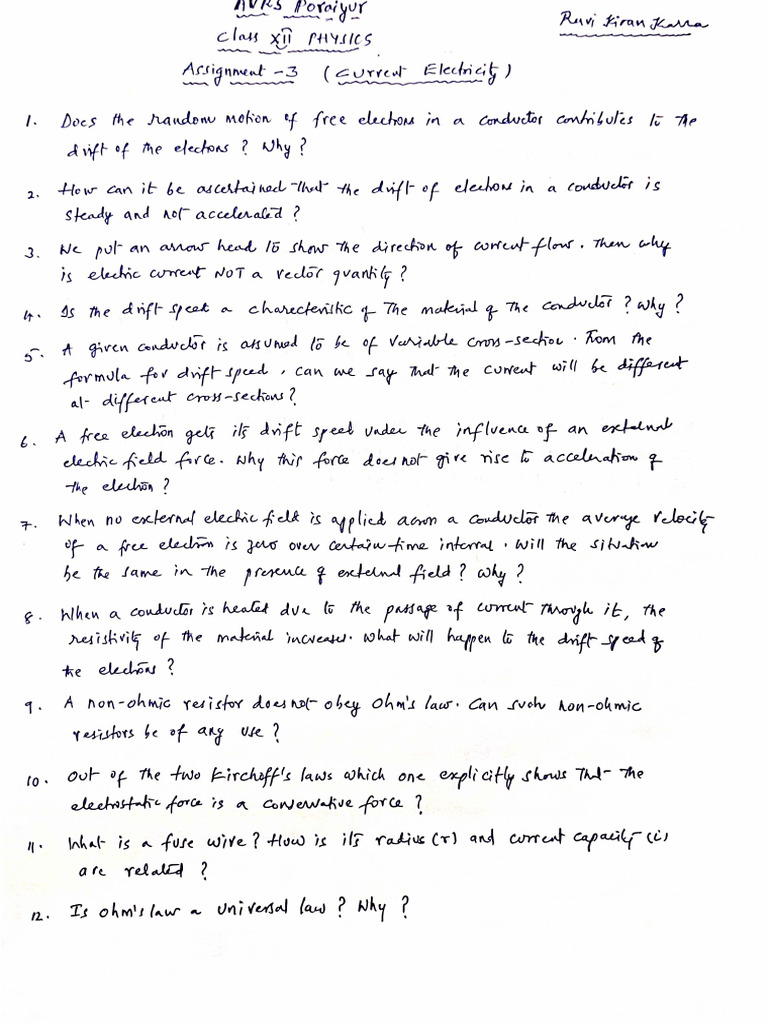 AVRS Poraiyur
Ravi Kiran Karra
Class XII PHYSICS
Assignment -3 (Current Electricity)
1. Does the random motion of free electrons in a conductor contributes to the
drift of the electrons? Why?
2. How can it be ascertained that the drift of electrons in a conductor is
steady and not accelerated?
3. We put an arrow head to show the direction of current flow. Then why
is electric current NOT a vector quantity?
4. Is the drift speed a charecteristic of The material of the conductor? Why?
5. A given conductor is assumed to be of variable cross-section. From the
formula for drift speed, can we say that the current will be different
at different cross-sections?
6. A free electron gets its drift speed under the influence of an external
electric field force. Why this force does not give rise to acceleration of
the electron?
7. When no external electric field is applied across a conductor the average velocity
of a free electron is zero over certain time interval. Will the situation
be the same in the presence of external field? Why?
8. When a conductor is heated due to the passage of current through it, the
resistivity of the material increases. What will happen to the drift speed of
the electrons?
9. A non-ohmic resistor does not obey Ohm's law. Can such non-ohmic
resistors be of any use?
10. Out of the two Kirchoff's laws which one explicitly shows that the
electrostatic force is a conservative force?
11. What is a fuse wire? How is its radius (r) and current capacity (i)
are related?
12. Is Ohm's law a universal law? Why?